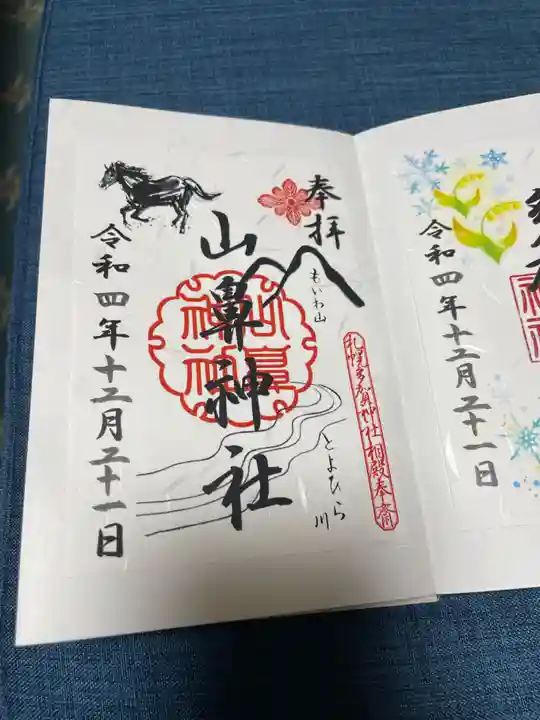 奉拝
もいわ山
札幌多賀神社 相殿奉斎
山鼻神社
とよひら川
令和四年十二月二十一日
令和四年十二月二十一日